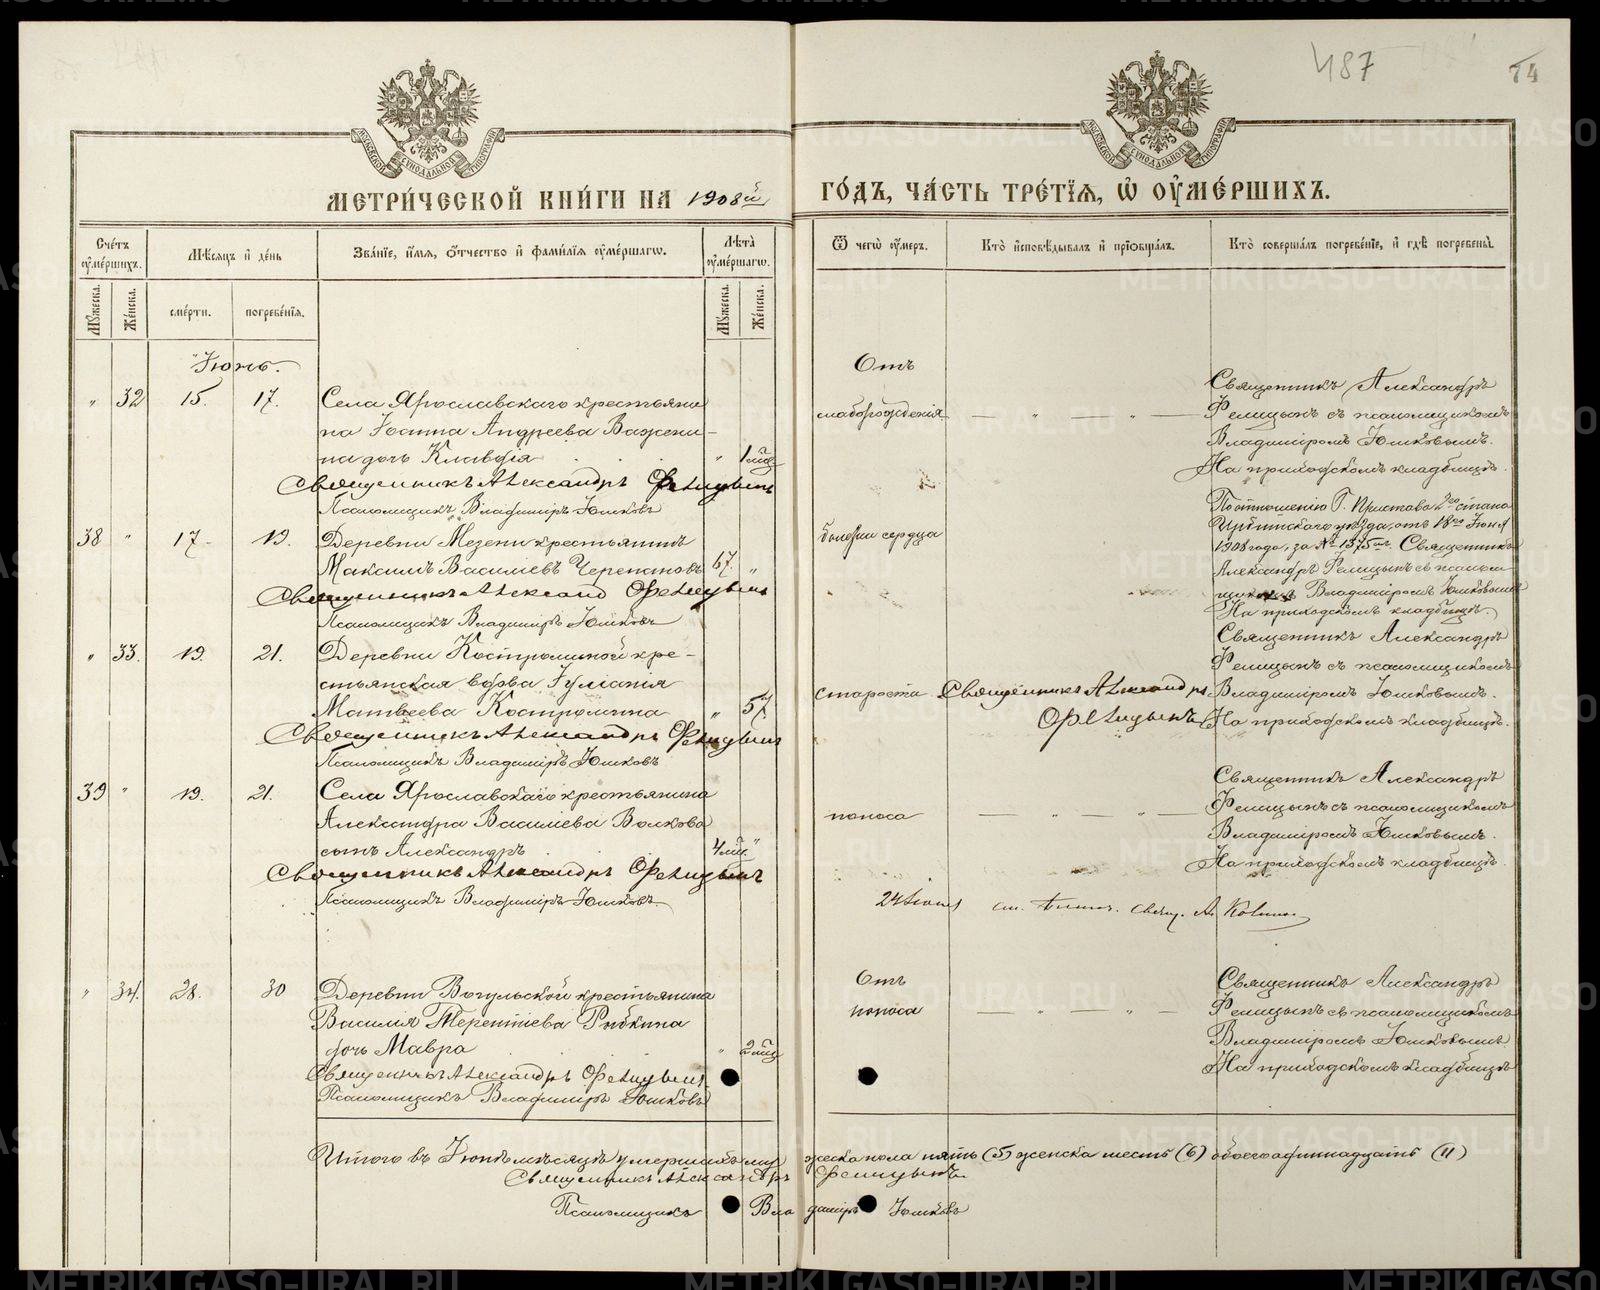 487
74
МЕТРИЧЕСКОЙ КНИГИ НА 1908й ГОДЪ, ЧАСТЬ ТРЕТІЯ, Ѡ ОУМЕРШИХЪ.
Счетъ оумершихъ.
Мѣсяцъ и день
Званіе, имя, отчество и фамилія оумершагѡ.
Лѣта оумершагѡ.
Ѿ чегѡ оумеръ.
Кто исповѣдывалъ и пріобщалъ.
Кто совершалъ погребеніе, и гдѣ погребены.
Мужеска.
Женска.
смерти.
погребенія.
Мужеска.
Женска.
Іюнь.
" 32 15. 17.
Села Ярославскаго крестьяни
на Іоанна Андреева Важени-
на дочь Клавдія " 1 мѣс.
Священникъ Александръ Фелицынъ
Псаломщикъ Владиміръ Юшковъ
Отъ
слаборожденія — " — " —
Священникъ Александръ
Фелицынъ съ псаломщикомъ
Владиміромъ Юшковымъ.
На приходскомъ кладбищѣ.
38 " 17. 19.
Деревни Мезени крестьянинъ
Максимъ Василіевъ Черепановъ 67. "
Священникъ Александ Фелицынъ
Псаломщикъ Владиміръ Юшковъ
болезни сердца
По отношенію Г. Пристава 2го стана
Ирбитскаго уѣзда, отъ 18го Іюня
1908 года, за № 1375мъ. Священникъ
Александръ Фелицынъ съ псалом
щикомъ Владиміромъ Юшковымъ
На приходскомъ кладбищѣ.
" 33. 19. 21.
Деревни Костроминой кре-
стьянская вдова Іуліанія
Матвѣева Костромина " 57.
Священникъ Александръ Фелицынъ
Псаломщикъ Владиміръ Юшковъ
старости
Священникъ Александръ
Фелицынъ
Священникъ Александръ
Фелицынъ съ псаломщикомъ
Владиміромъ Юшковымъ.
На приходскомъ кладбищѣ.
39 " 19. 21.
Села Ярославскаго крестьянина
Александра Василіева Волкова
сынъ Александръ 4 мѣс. "
Священникъ Александръ Фелицынъ
Псаломщикъ Владиміръ Юшковъ.
поноса — " — " —
Священникъ Александръ
Фелицынъ съ псаломщикомъ
Владиміромъ Юшковымъ.
На приходскомъ кладбищѣ.
" 34. 28. 30
Деревни Вогульской крестьянина
Василія Терентіева Рябкина
дочь Мавра " 2 мѣс.
Священникъ Александръ Фелицынъ
Псаломщикъ Владиміръ Юшковъ
Отъ
поноса — " — " —
Священникъ Александръ
Фелицынъ съ псаломщикомъ
Владиміромъ Юшковымъ.
На приходскомъ кладбищѣ
Итого въ Іюнѣ мѣсяцѣ умершихъ мужеска пола пять (5) женска шесть (6) обоего одиннадцать (11)
Священникъ Александръ Фелицынъ
Псаломщикъ Владиміръ Юшковъ
METRIKI.GASO-URAL.RU